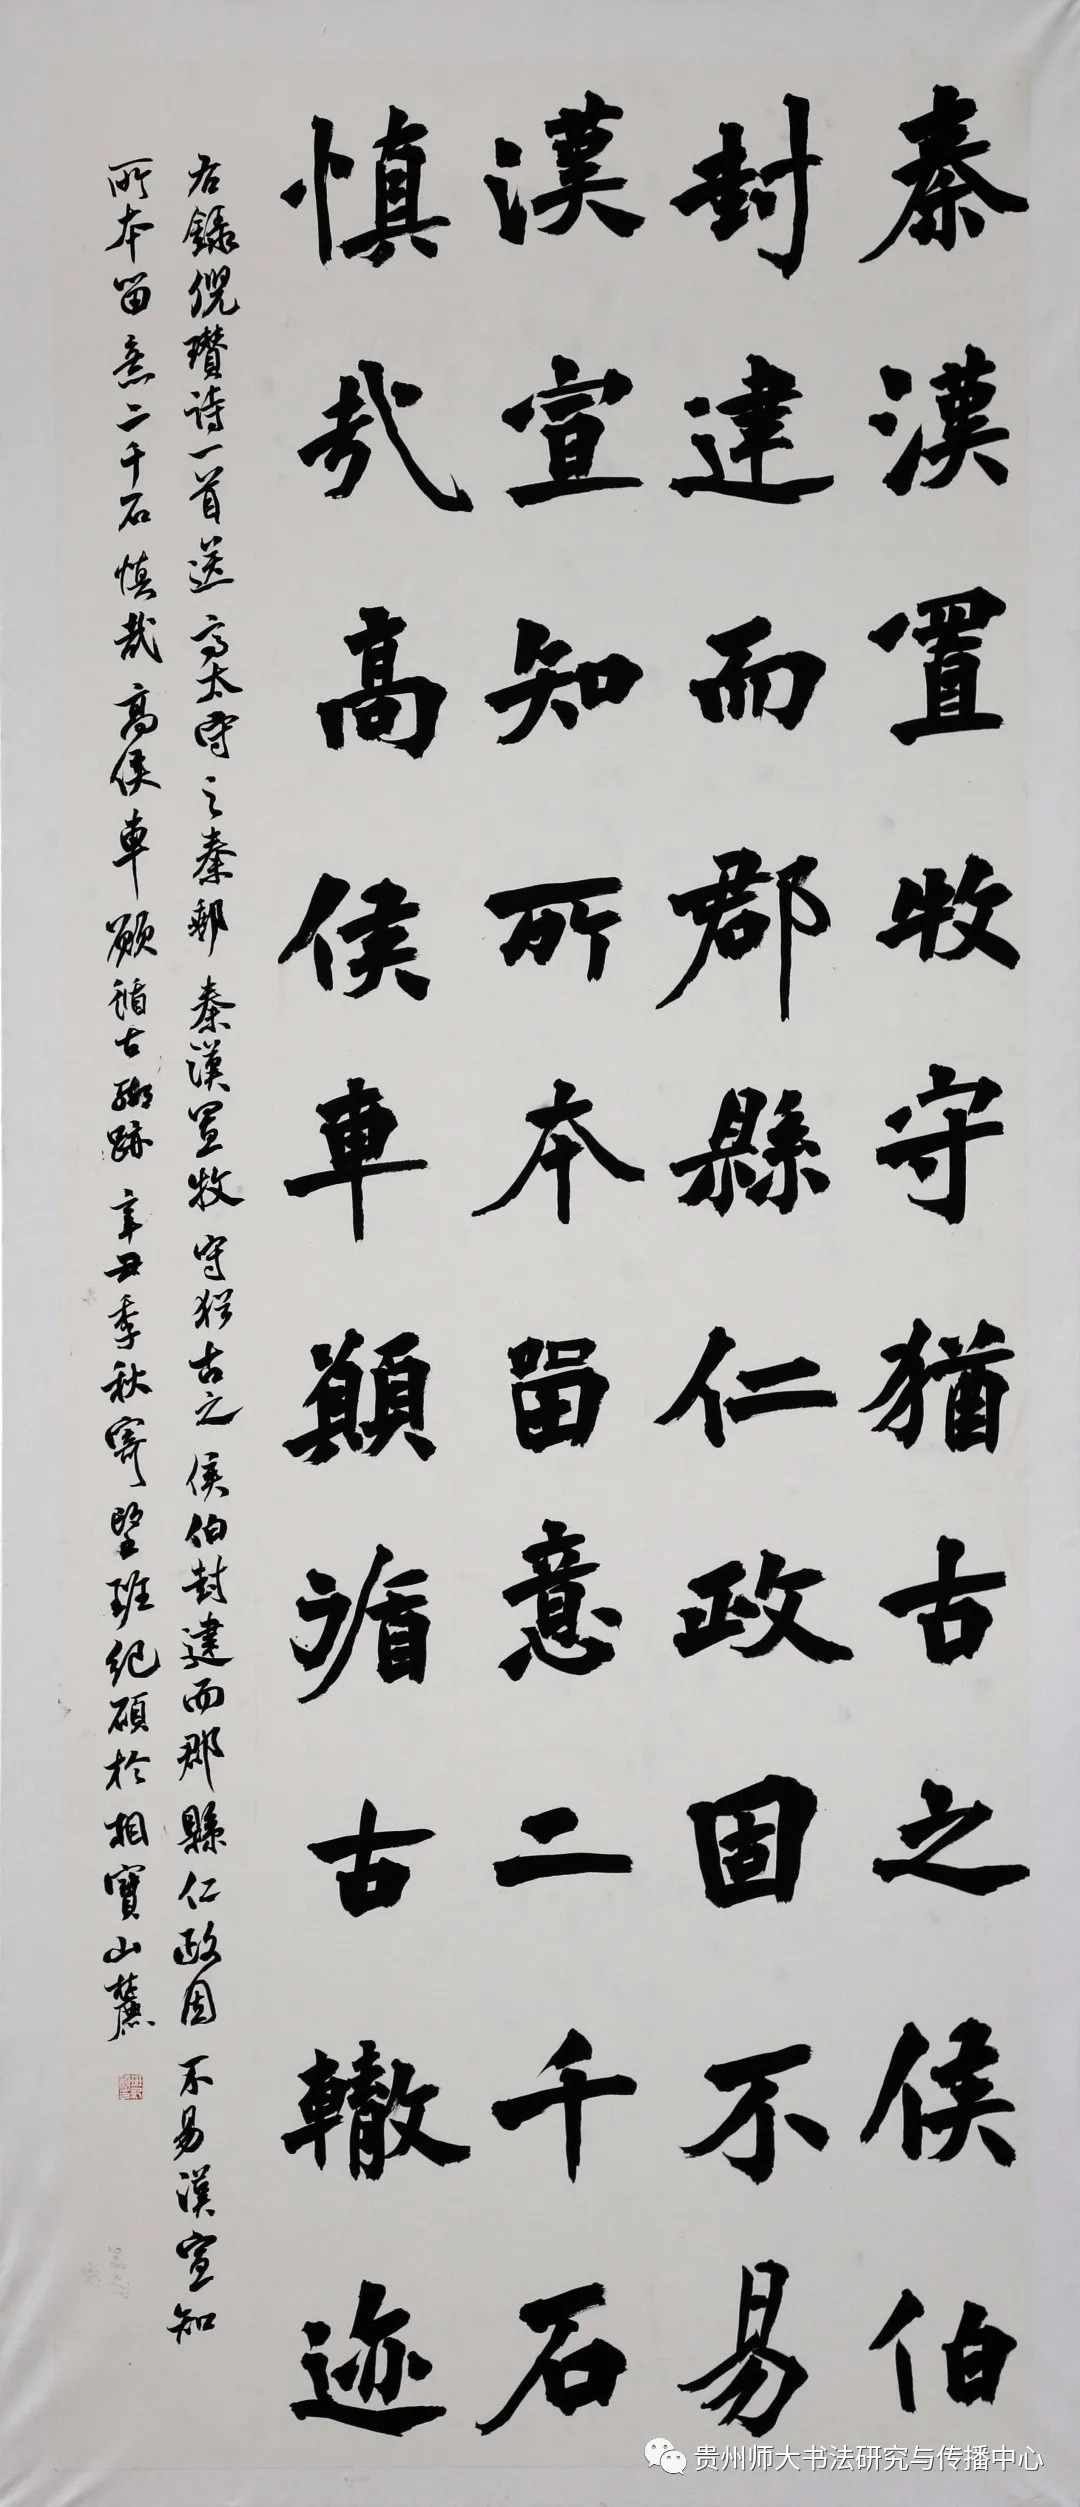 秦漢置牧守猶古之侯伯
封建而郡縣仁政固不易
漢宣知所本留意二千石
慎哉高侯車願循古轍迹
右錄倪瓚詩一首送高太守之秦郵秦漢置牧守猶古之侯伯封建而郡縣仁政固不易漢宣知
所本留意二千石慎哉高侯車願循古轍跡辛丑季秋寄塈班紀碩於相寶山麓
贵州师大书法研究与传播中心